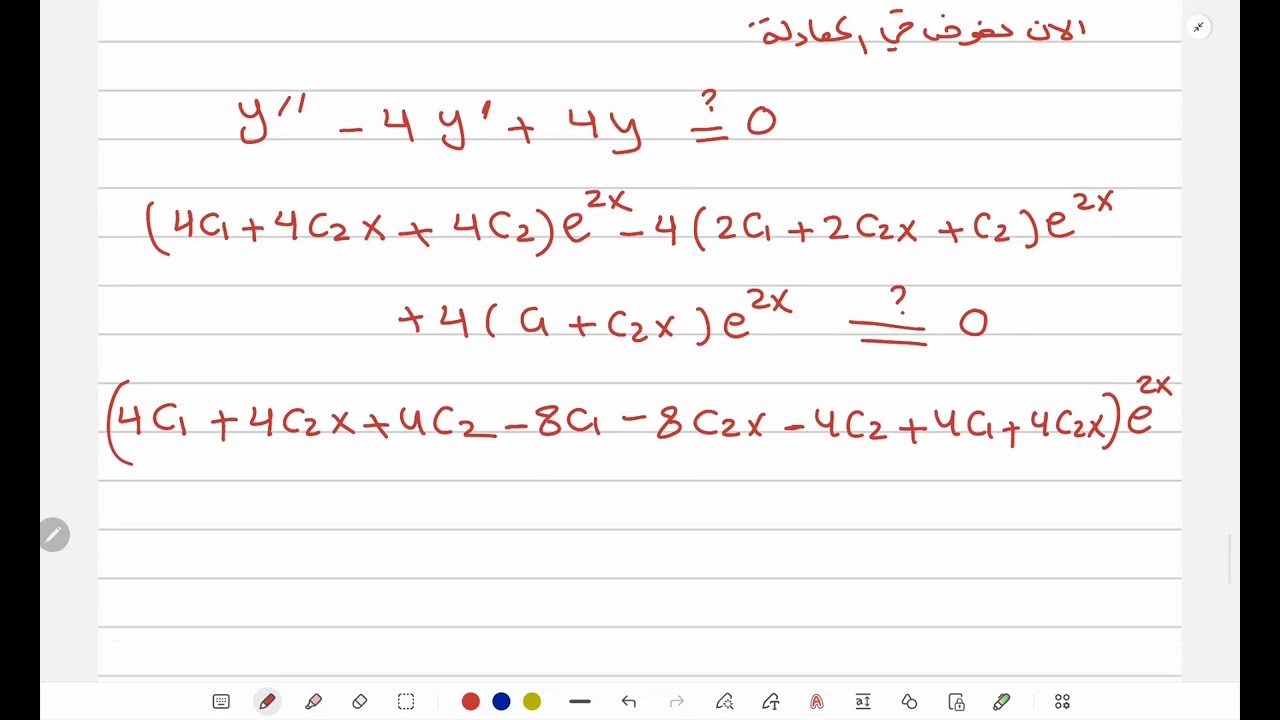 الان نعوض في المعادلة:
y'' - 4y' + 4y =? 0
(4C₁ + 4C₂x + 4C₂)e^2x - 4(2C₁ + 2C₂x + C₂)e^2x
+ 4(C₁ + C₂x)e^2x =? 0
(4C₁ + 4C₂x + 4C₂ - 8C₁ - 8C₂x - 4C₂ + 4C₁ + 4C₂x)e^2x